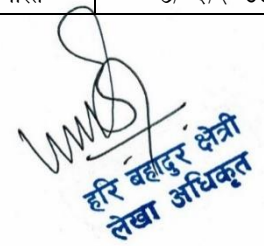 हरि बहादुर क्षेत्री
लेखा अधिकृत